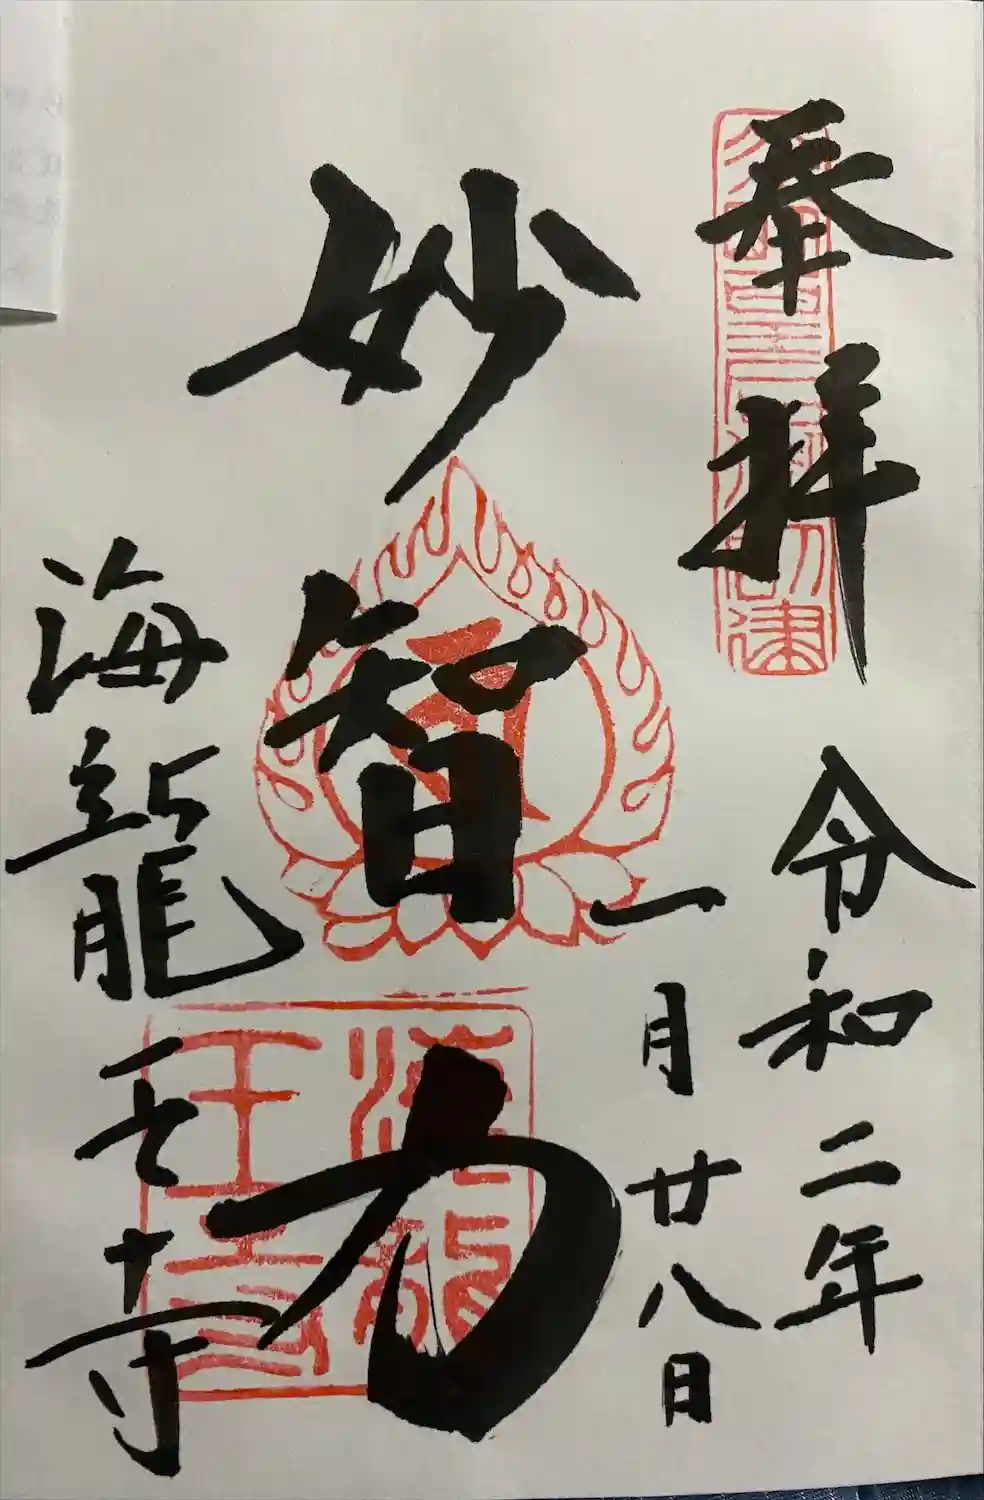 奉拝
令和二年
一月廿八日
妙智力
海龍王寺
海龍
王寺